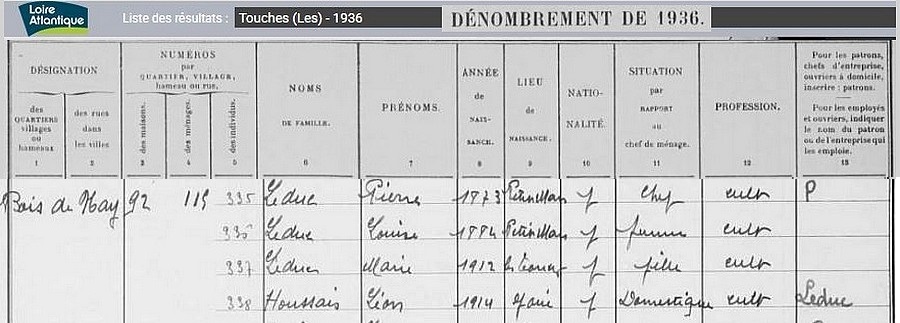 Loire
Atlantique
Liste des résultats : Touches (Les) - 1936
DÉNOMBREMENT DE 1936.
DÉSIGNATION
des QUARTIERS villages ou hameaux
1
des rues dans les villes
2
NUMÉROS par QUARTIER, VILLAGE, hameau ou rue.
des maisons.
3
des ménages.
4
des individus.
5
NOMS DE FAMILLE.
6
PRÉNOMS.
7
ANNÉE de NAISSANCE.
8
LIEU de NAISSANCE.
9
NATIONALITÉ.
10
SITUATION par RAPPORT au chef de ménage.
11
PROFESSION.
12
Pour les patrons, chefs d'entreprise, ouvriers à domicile, inscrire : patrons.
Pour les employés et ouvriers, indiquer le nom du patron ou de l'entreprise qui les emploie.
13
Bois de Nay 92 115 335 Leduc Pierre 1873 f chef cult P
Leduc Louise 1884 f femme cult
337 Leduc Marie 1912 f fille cult
338 Houssais Léon 1914 f Domestique cult Leduc